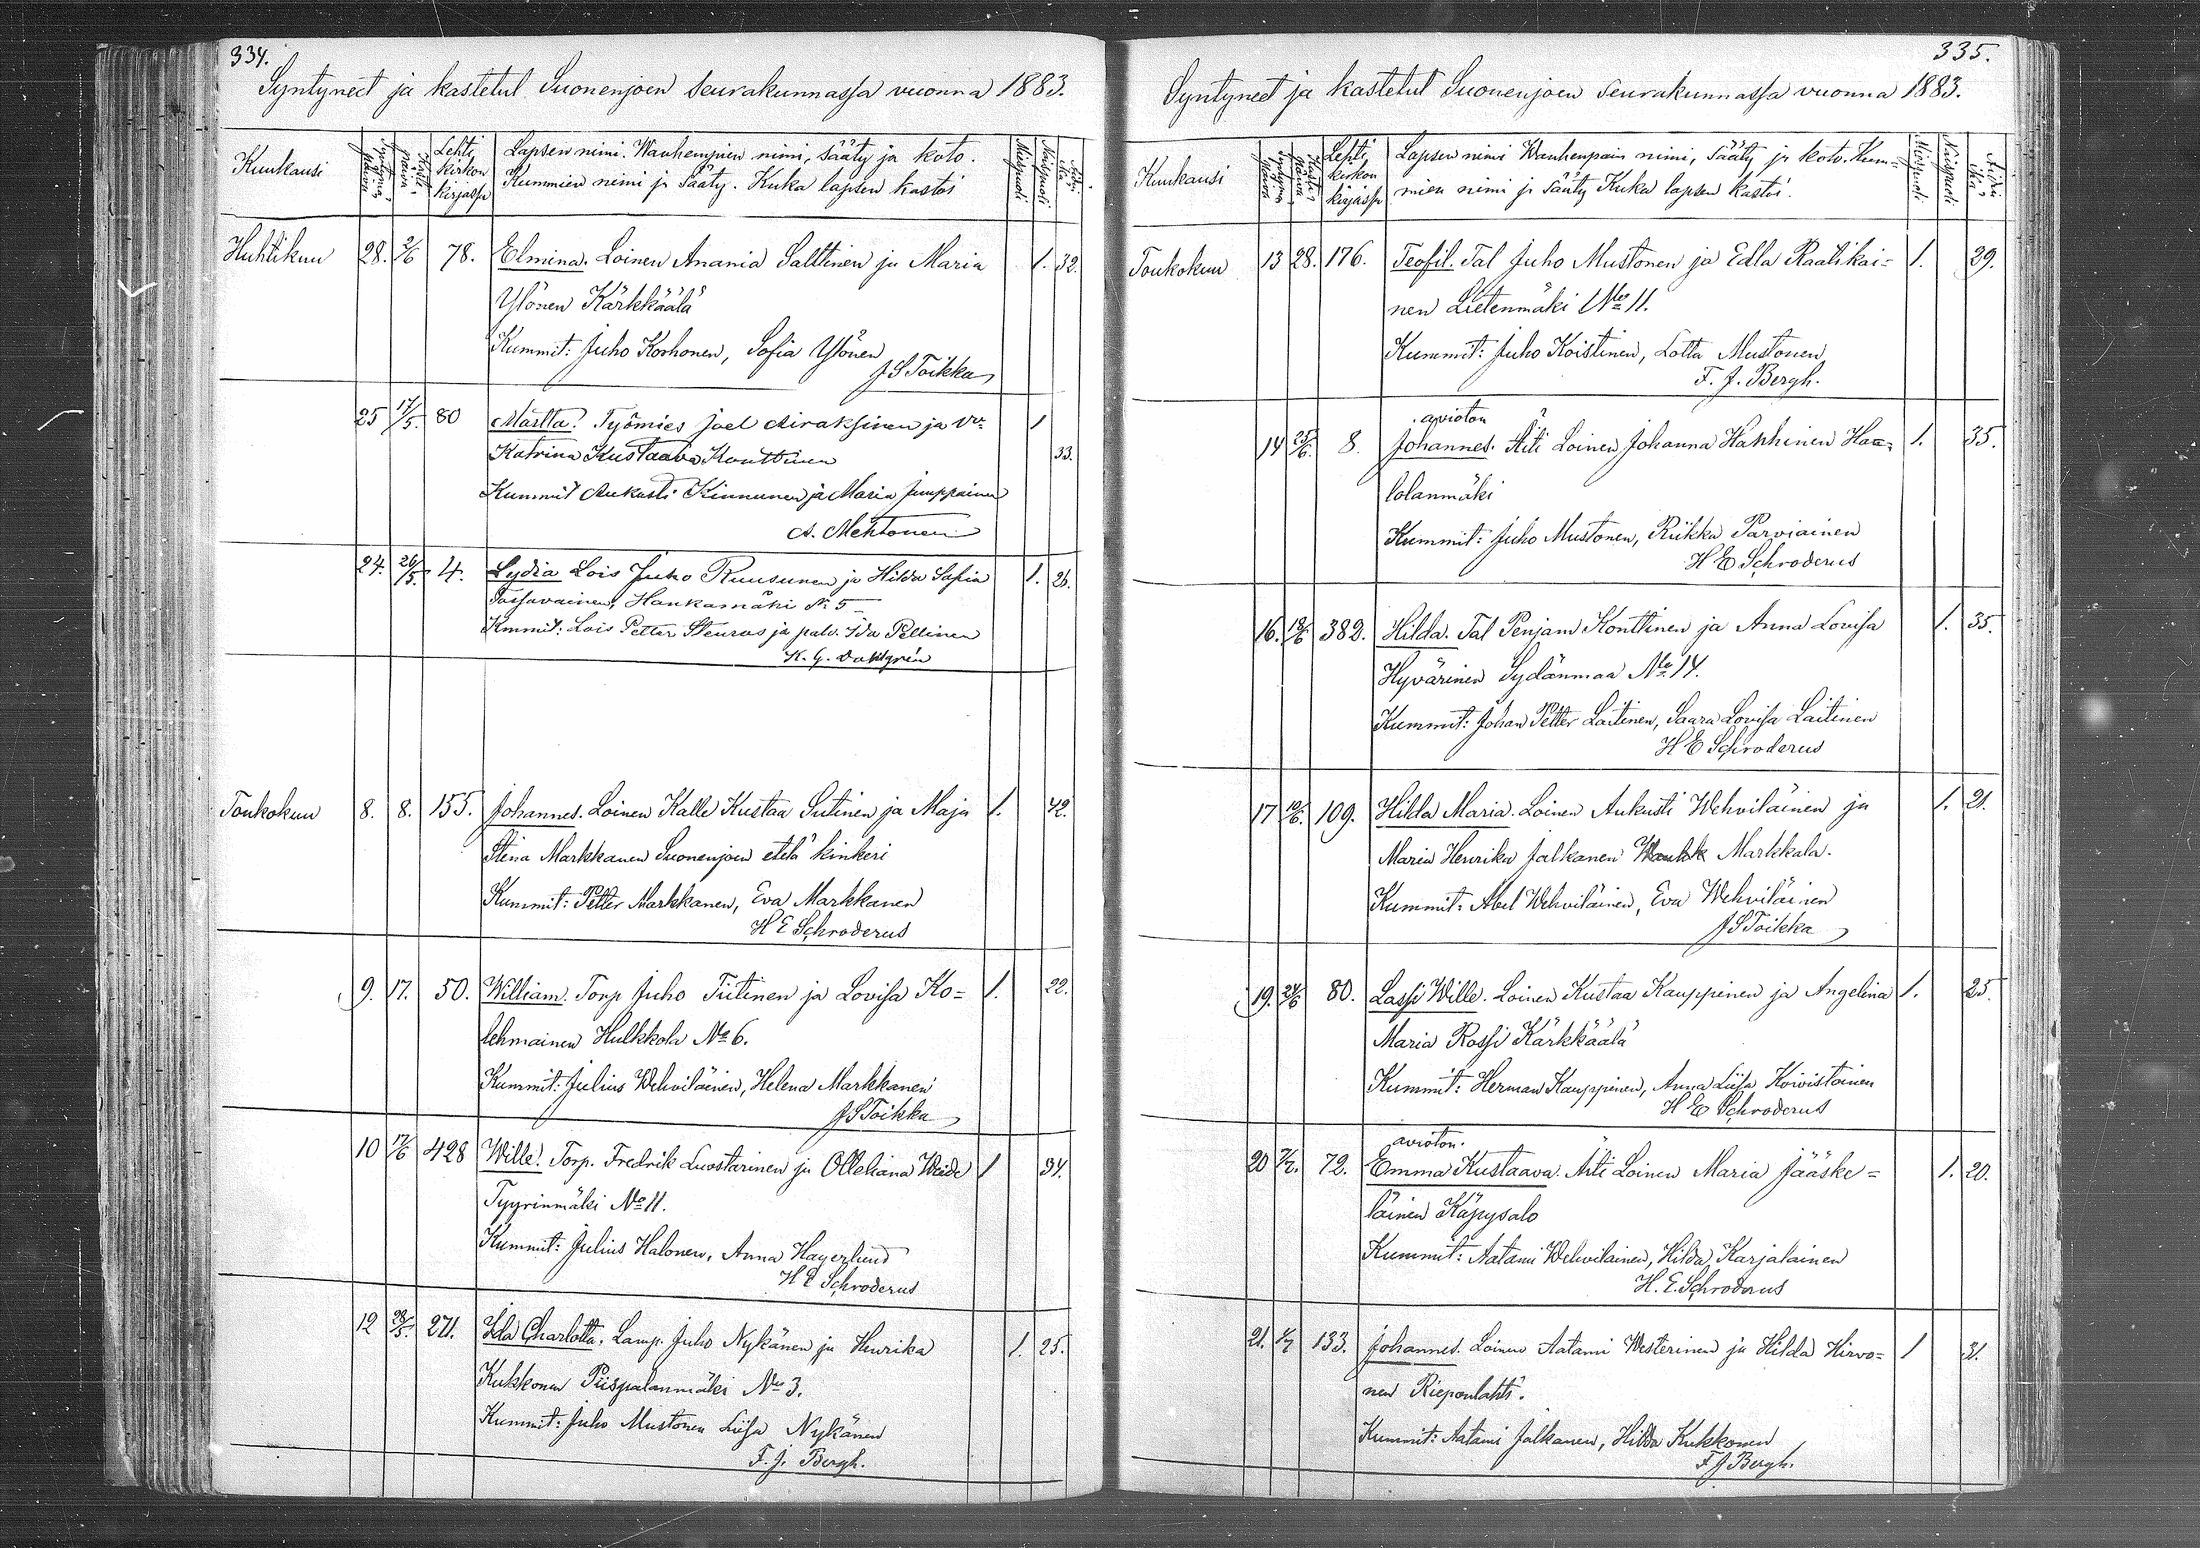 334.
Syntyneet ja kastetut Suonenjoen seurakunnassa vuonna 1883.
Kuukausi
Syntymä päivä
Kaste päivä
Lehti kirkon kirjassa
Lapsen nimi. Wanhempien nimi, sääty ja koto.
Kummien nimi ja sääty. Kuka lapsen kastoi
Miespuoli
Naispuoli
Huhtikuu 28. 2/6 78. Elmina. Loinen Anania Salttinen ja Maria 1. 32.
Ylönen Kärkkäälä
Kummit: Juho Korhonen, Sofia Ylönen
J S Toikka
25 17/5. 80 Martta. Työmies Joel Airaksinen ja Vv. 1
Katrina Kustaava Konttinen 33.
Kummit Aukusti Kinnunen ja Maria Jumppainen
A. Mehtonen
24. 26/5. 4. Lydia Lois Juho Ruusunen ja Hilda Sofia 1. 26.
Tossavainen, Haukamäki N: 5
Kmmit: Lois Petter Steuras ja palv. Ida Pellinen
K. G. Dahlgrén
Toukokuu 8. 8. 155. Johannes. Loinen Kalle Kustaa Sutinen ja Maja 1. 42.
Stina Markkanen Suonenjoen etelä kinkeri
Kummit: Petter Markkanen, Eva Markkanen
H E Schroderus
9. 17. 50. William. Torp Juho Tiitinen ja Lovisa Ko= 1. 22.
lehmainen Hulkkola No 6.
Kummit: Julius Wehviläinen, Helena Markkanen
J S Toikka
10 17/6 428 Wille. Torp. Fredrik Luostarinen ja Olleliana Weide 1 34.
Tyyrinmäki No 11.
Kummit: Julius Halonen, Anna Hagerlund
H E Schroderus
12 28/5. 271. Ida Charlotta. Lamp. Juho Nykänen ja Henrika 1. 25.
Kukkonen Piispalanmäki No 3.
Kummit: Juho Mustonen Liisa Nykänen
F. J. Bergh.
335.
Syntyneet ja kastetut Suonenjoen seurakunnassa vuonna 1883.
Kuukausi
Syntymä päivä
Kaste päivä
Lehti kirkon kirjassa
Lapsen nimi Wanhempain nimi, sääty ja koto. Kum=
mien nimi ja sääty Kuka lapsen kastoi.
Miespuoli
Naispuoli
Äidin ikä
Toukokuu 13 28. 176. Teofil. Tal Juho Mustonen ja Edla Raatikai= 1. 29.
nen Lietenmäki No 11.
Kummit: Juho Koistinen, Lotta Mustonen
F. J. Bergh.
avioton
14 25/6. 8. Johannes. Äiti Loinen Johanna Hakkinen Haa= 1. 35.
lolanmäki
Kummit: Juho Mustonen, Riikka Parviainen
H E Schroderus
16. 18/6 382. Hilda. Tal Penjam Konttinen ja Anna Lovisa 1. 35.
Hyvärinen Sydänmaa No 14.
Kummit: Johan Petter Laitinen, Saara Lovisa Laitinen
H E Schroderus
17 10/6. 109. Hilda Maria. Loinen Aukusti Wehviläinen ja 1. 21.
Maria Henrika Jalkanen Markkala.
Kummit: Abel Wehviläinen, Eva Wehviläinen
J S Toikka
19. 24/6 80. Lassi Wille. Loinen Kustaa Kauppinen ja Angelina 1. 25.
Maria Rossi Kärkkäälä
Kummit: Herman Kauppinen, Anna Liisa Koivistoinen
H E Schroderus
avioton.
20 7/7. 72. Emma Kustaava. Äiti Loinen Maria Jääske= 1. 20.
läinen Käpysalo
Kummit: Aatami Wehviläinen, Hilda Karjalainen
H. E. Schroderus
21. 1/7 133. Johannes. Loinen Aatami Westerinen ja Hilda Hirvo= 1 31.
nen Rieponlahti.
Kummit: Aatami Jalkanen, Hilda Kukkonen
F J Bergh.